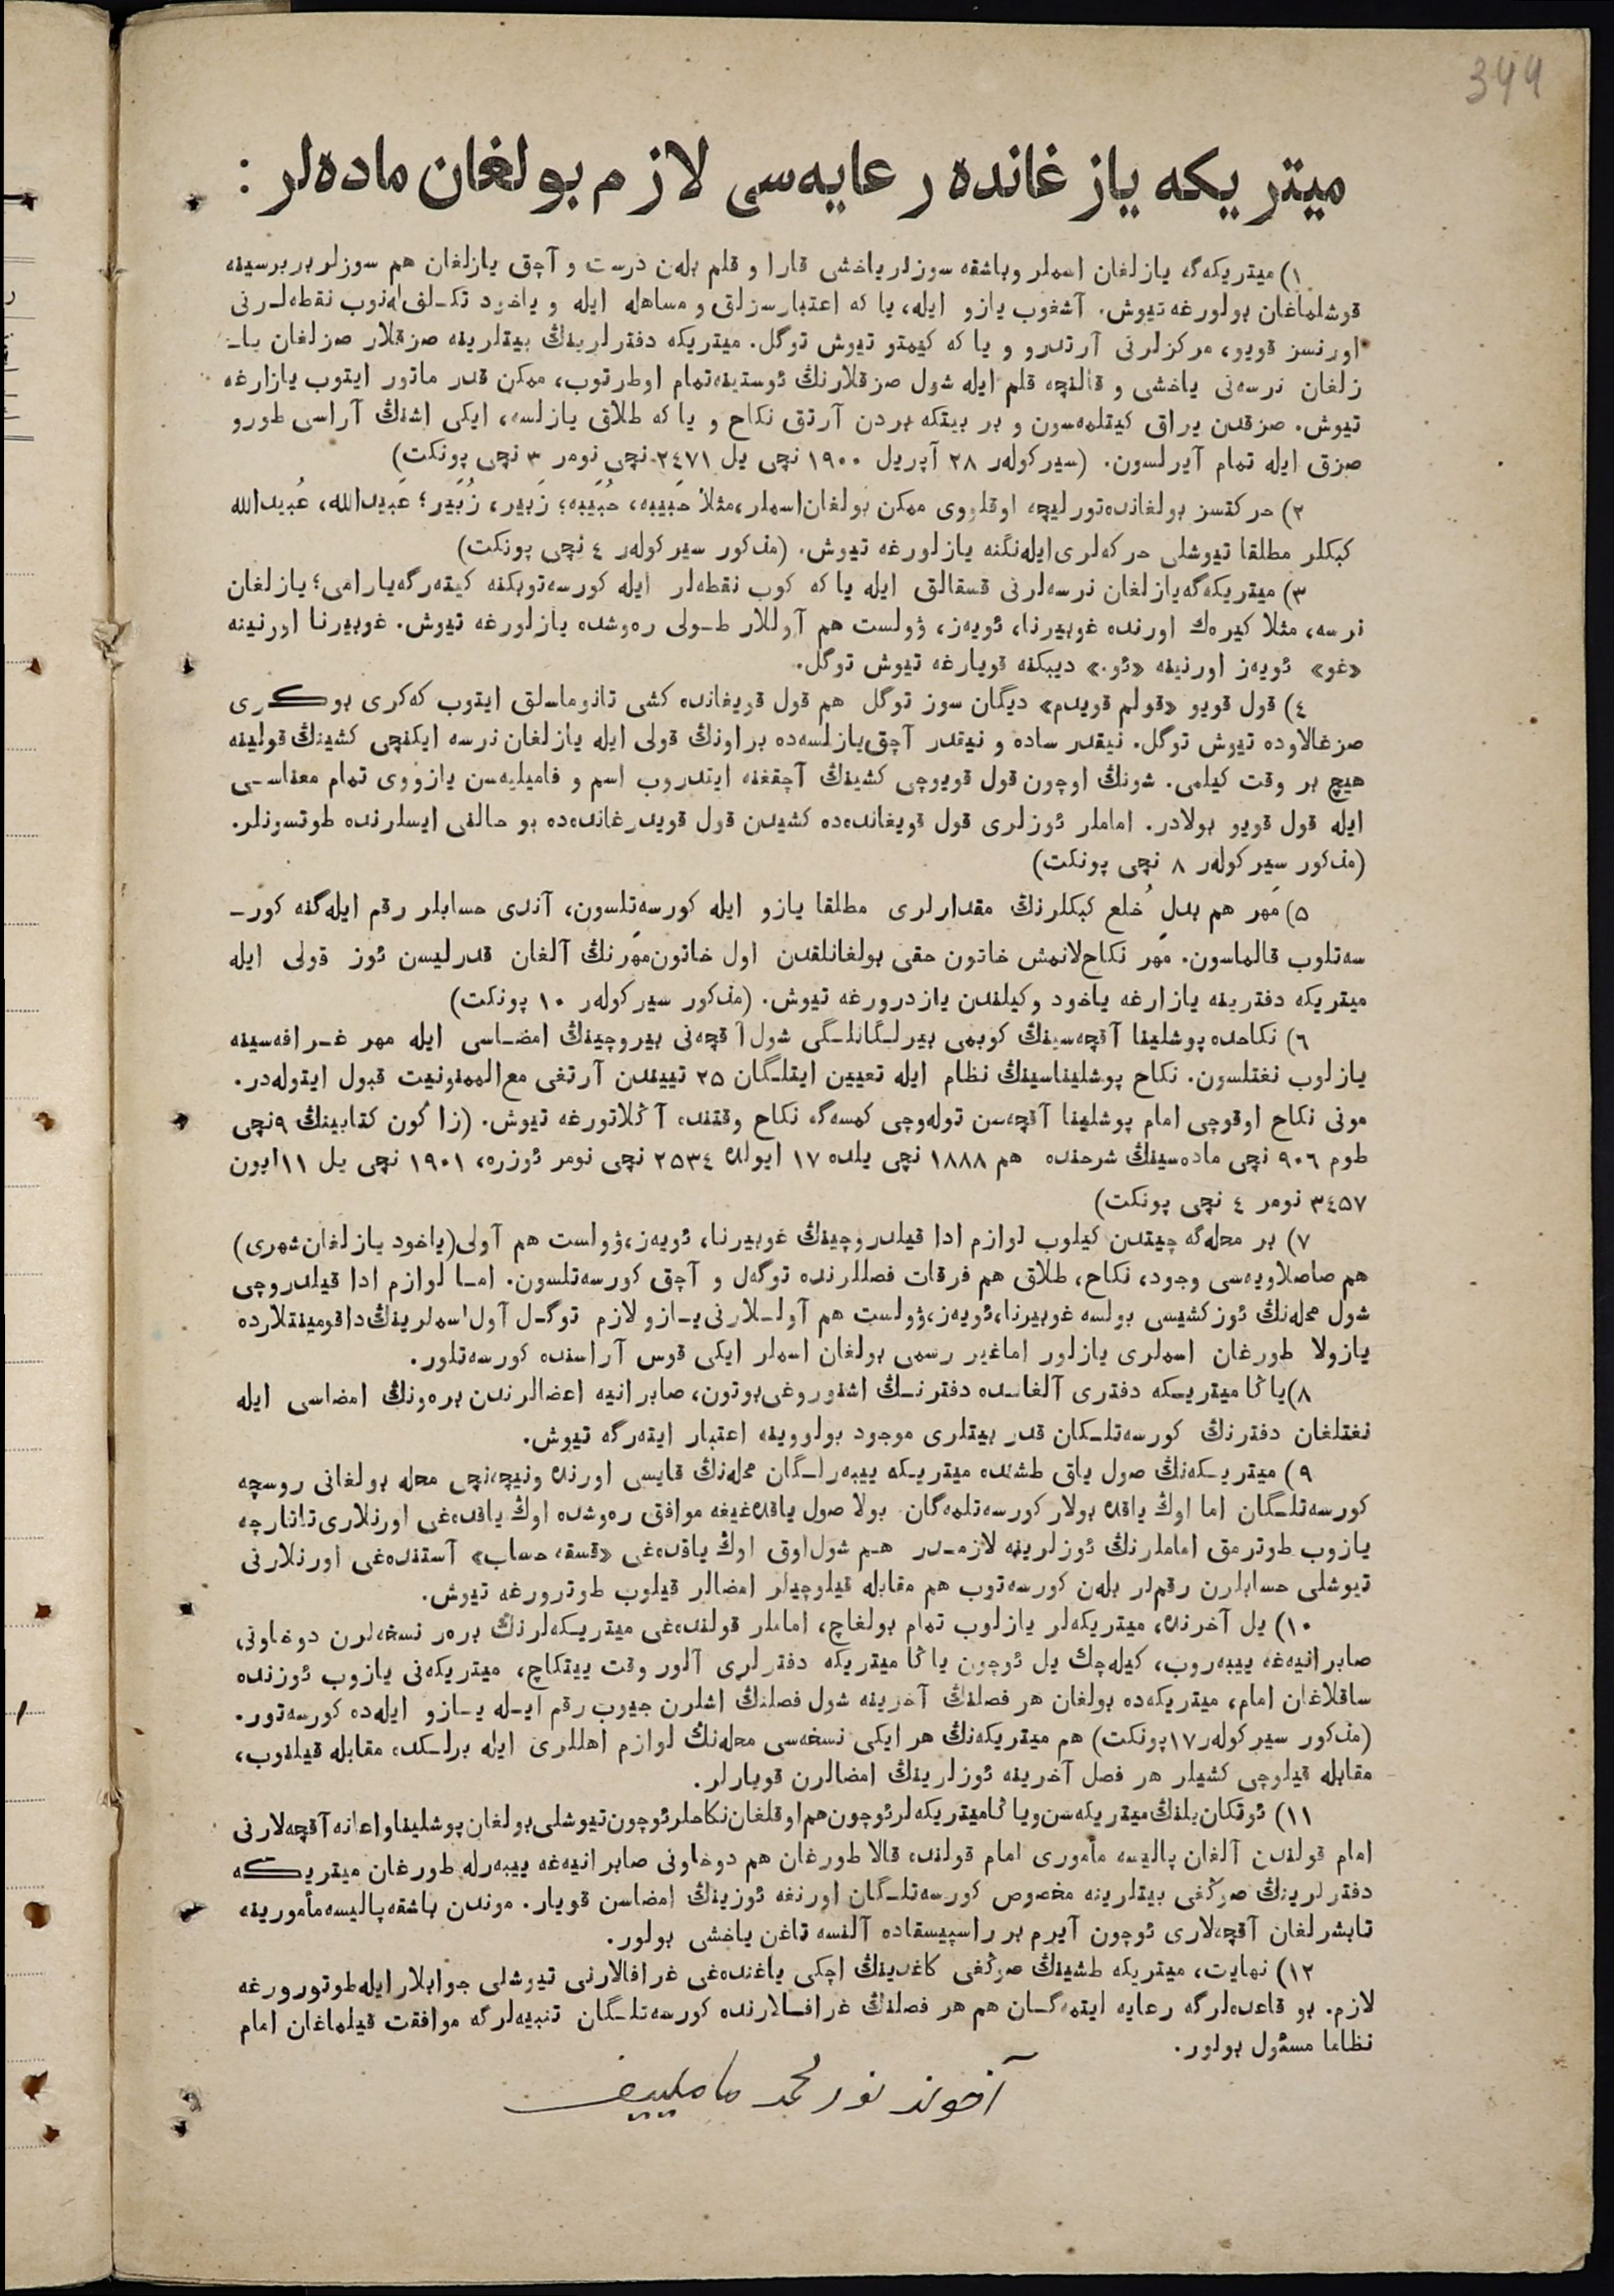 344
ميتريكه يازغانده رعايه‌سى لازم بولغان ماده‌لر :
١) ميتريكه‌گه يازلغان اسملر وباشقه سوزلر ياخشى قارا و قلم بله‌ن درست و آچق يازلغان هم سوزلر بربرسينه
قوشلماغان بولورغه تيوش. آشغوب يازو ايله، يا كه اعتبارسزلق و مساهله ايله و ياخود تكـلف‌له‌نوب نقطه‌لـرنى
اورنسز قويو، مركزلرنى آرتدرو و يا كه كيمتو تيوش توگل. ميتريكه دفترلرينڭ بيتلرينه صزقلار صزلغان يا‍ـ
زلغان نرسه‌نى ياخشى و قالنچه قلم ايله شول صزقلارنڭ ئوستينه تمام اوطرتوب، ممكن قدر ماتور ايتوب يازارغه
تيوش. صزقدن يراق كيتلمه‌سون و بر بيتكه بردن آرتق نكاح و يا كه طلاق يازلسه، ايكى اشنڭ آراسى طورو
صزق ايله تمام آيرلسون. (سيركوله‌ر ٢٨ آپريل ١٩٠٠ نچى يل ٢٤٧١ نچى نومر ٣ نچى پونكت)
٢) حركتسز بولغانده تورليچه اوقلووى ممكن بولغان اسملر، مثلا حَبيبه، حُبَيبه؛ زَبير، زُبَير؛ عَبيدالله، عُبيدالله
كبكلر مطلقا تيوشلى حركه‌لرى ايله‌نگنه يازلورغه تيوش. (مذكور سيركوله‌ر ٤ نچى پونكت)
٣) ميتريكه‌گه يازلغان نرسه‌لرنى قسقالق ايله يا كه كوب نقطه‌لر ايله كورسه‌توبكنه كيته‌رگه يارامى؛ يازلغان
نرسه، مثلا كيره‌ك اورنده غوبيرنا، ئويه‌ز، ۋولست هم آوللار طـولى ره‌وشده يازلورغه تيوش. غوبيرنا اورنينه
«غو» ئويه‌ز اورنينه «ئو.» ديبكنه قويارغه تيوش توگل.
٤) قول قويو «قولم قويدم» ديگان سوز توگل هم قول قويغانده كشى تانوماسلق ايتوب كه‌كرى بوكرى
صزغالاوده تيوش توگل. نيقدر ساده و نيتدر آچق يازلسه‌ده براونڭ قولى ايله يازلغان نرسه ايكنچى كشينڭ قولينه
هيچ بر وقت كيلمى. شونڭ اوچون قول قويوچى كشينڭ آچقغنه ايتدروب اسم و فاميليه‌سن يازووى تمام معناسـى
ايله قول قويو بولادر. اماملر ئوزلرى قول قويغانده‌ده كشيدن قول قويدرغانده‌ده بو حالنى ايسلرنده طوتسونلر.
(مذكور سيركوله‌ر ٨ نچى پونكت)
٥) مَهر هم بدلِ خُلع كبكلرنڭ مقدارلرى مطلقا يازو ايله كورسه‌تلسون، آندى حسابلر رقم ايله‌گنه كور‍ـ
سه‌تلوب قالماسون. مَهر نكاح‌لانمش خاتون حقى بولغانلقدن اول خاتون مَهرنڭ آلغان قدرليسن ئوز قولى ايله
ميتريكه دفترينه يازارغه ياخود وكيلندن يازدرورغه تيوش. (مذكور سيركوله‌ر ١٠ پونكت)
٦) نكاحده پوشلينا آقچه‌سينڭ كوبمى بيرلـگانلـگى شول آقچه‌نى بيروچينڭ امضـاسى ايله مهر غـرافه‌سينه
يازلوب نغتلسون. نكاح پوشليناسينڭ نظام ايله تعيين ايتلـگان ٢٥ تييندن آرتغى مع‌الممنونيت قبول ايتوله‌در.
مونى نكاح اوقوچى امام پوشلينا آقچه‌سن توله‌وچى كمسه‌گه نكاح وقتنده آڭلاتورغه تيوش. (زاكون كتابينڭ ٩نچى
طوم ٩٠٦ نچى ماده‌سينڭ شرحنده هم ١٨٨٨ نچى يلده ١٧ ايولده ٢٥٣٤ نچى نومر ئوزره، ١٩٠١ نچى يل ١١ ايون
٣٤٥٧ نومر ٤ نچى پونكت)
٧) بر محله‌گه چيتدن كيلوب لوازم ادا قيلدروچينڭ غوبيرنا، ئويه‌ز، ۋولست هم آولى (ياخود يازلغان شهرى)
هم صاصلاويه‌سى وجود، نكاح، طلاق هم فرقات فصللرنده توگه‌ل و آچق كورسه‌تلسون. امـا لوازم ادا قيلدروچى
شول محله‌نڭ ئوز كشيسى بولسه غوبيرنا، ئويه‌ز، ۋولست هم آولـلارنى يـازو لازم توگـل آول اسملرينڭ داقومينتلارده
يازولا طورغان اسملرى يازلور اما غير رسمى بولغان اسملر ايكى قوس آراسنده كورسه‌تلور.
٨) ياڭا ميتريـكه دفترى آلغانـده دفترنـڭ اشنوروغى بوتون، صابرانيه اعضالرندن بره‌ونڭ امضاسى ايله
نغتلغان دفترنڭ كورسه‌تلـكان قدر بيتلرى موجود بولووينه اعتبار ايته‌رگه تيوش.
٩) ميتريـكه‌نڭ صول ياق طشنده ميتريـكه ييبه‌رلـگان محله‌نڭ قايسى اورنده ونيچه‌نچى محله بولغانى روسچه
كورسه‌تلـگان اما اوڭ ياقده بولار كورسه‌تلمه‌گان. بولا صول ياقده‌غيغه موافق ره‌وشده اوڭ ياقده‌غى اورنلارى تاتارچه
يازوب طوترمق اماملرنڭ ئوزلرينه لازمـدر هـم شول اوق اوڭ ياقده‌غى «قسقه حساب» آستنده‌غى اورنلارنى
تيوشلى حسابلرن رقم‌لر بله‌ن كورسه‌توب هم مقابله قيلوچيلر امضالر قيلوب طوترورغه تيوش.
١٠) يل آخرنده، ميتريكه‌لر يازلوب تمام بولغاچ، اماملر قولنده‌غى ميتريـكه‌لرنڭ بره‌ر نسخه‌لرن دوخاونى
صابرانيه‌غه ييبه‌روب، كيله‌چك يل ئوچون ياڭا ميتريكه دفترلرى آلور وقت ييتكاچ، ميتريكه‌نى يازوب ئوزنده
ساقلاغان امام، ميتريكه‌ده بولغان هر فصلنڭ آخرينه شول فصلنڭ اشلرن جيوب رقم ايـله يـازو ايله‌ده كورسه‌تور.
(مذكور سيركوله‌ر ١٧ پونكت) هم ميتريكه‌نڭ هر ايكى نسخه‌سى محله‌نڭ لوازم اهللرى ايله برلـكده مقابله قيلنوب،
مقابله قيلوچى كشيلر هر فصل آخرينه ئوزلرينڭ امضالرن قويارلر.
١١) ئوتكان يلنڭ ميتريكه‌سن ويا ڭا ميتريكه‌لر ئوچون هم اوقلغان نكاحلر ئوچون تيوشلى بولغان پوشلينا و اعانه آقچه‌لارنى
امام قولندن آلغان پاليسه مأمورى امام قولنده قالا طورغان هم دوخاونى صابرانيه‌غه ييبه‌رله طورغان ميتريكه
دفترلرينڭ صوڭغى بيتلرينه مخصوص كورسه‌تلـگان اورنغه ئوزينڭ امضاسن قويار. موندن باشقه پاليسه مأمورينه
تابشرلغان آقچه‌لارى ئوچون آيرم بر راسپيسقاده آلنسه تاغن ياخشى بولور.
١٢) نهايت، ميتريكه طشينڭ صوڭغى كاغدينڭ اچكى ياغنده‌غى غرافالارنى تيوشلى جوابلار ايله طوتورورغه
لازم. بو قاعده‌لرگه رعايه ايتمه‌گـان هم هر فصلنڭ غرافـالارنده كورسه‌تلـگان تنبيه‌لرگه موافقت قيلماغان امام
نظاما مسئول بولور.
آخوند نورمحمد ماملييف